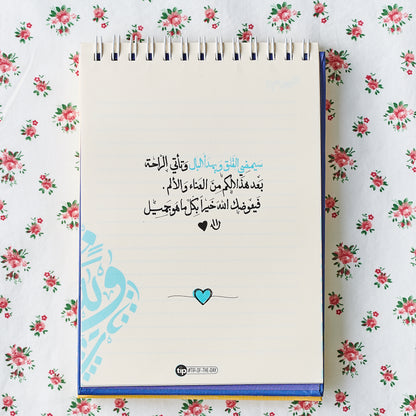 سيمضي القلق ويهدأ البال وتأتي الراحة
بعد هذا الكم من العناء والألم.
فيعوضك الله خيراً بكل ما هو جميل
tip #TIP-OF-THE-DAY